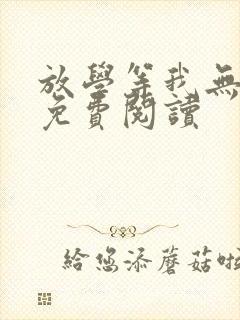 放學等我無
免費閱讀
給您添蘑菇啦